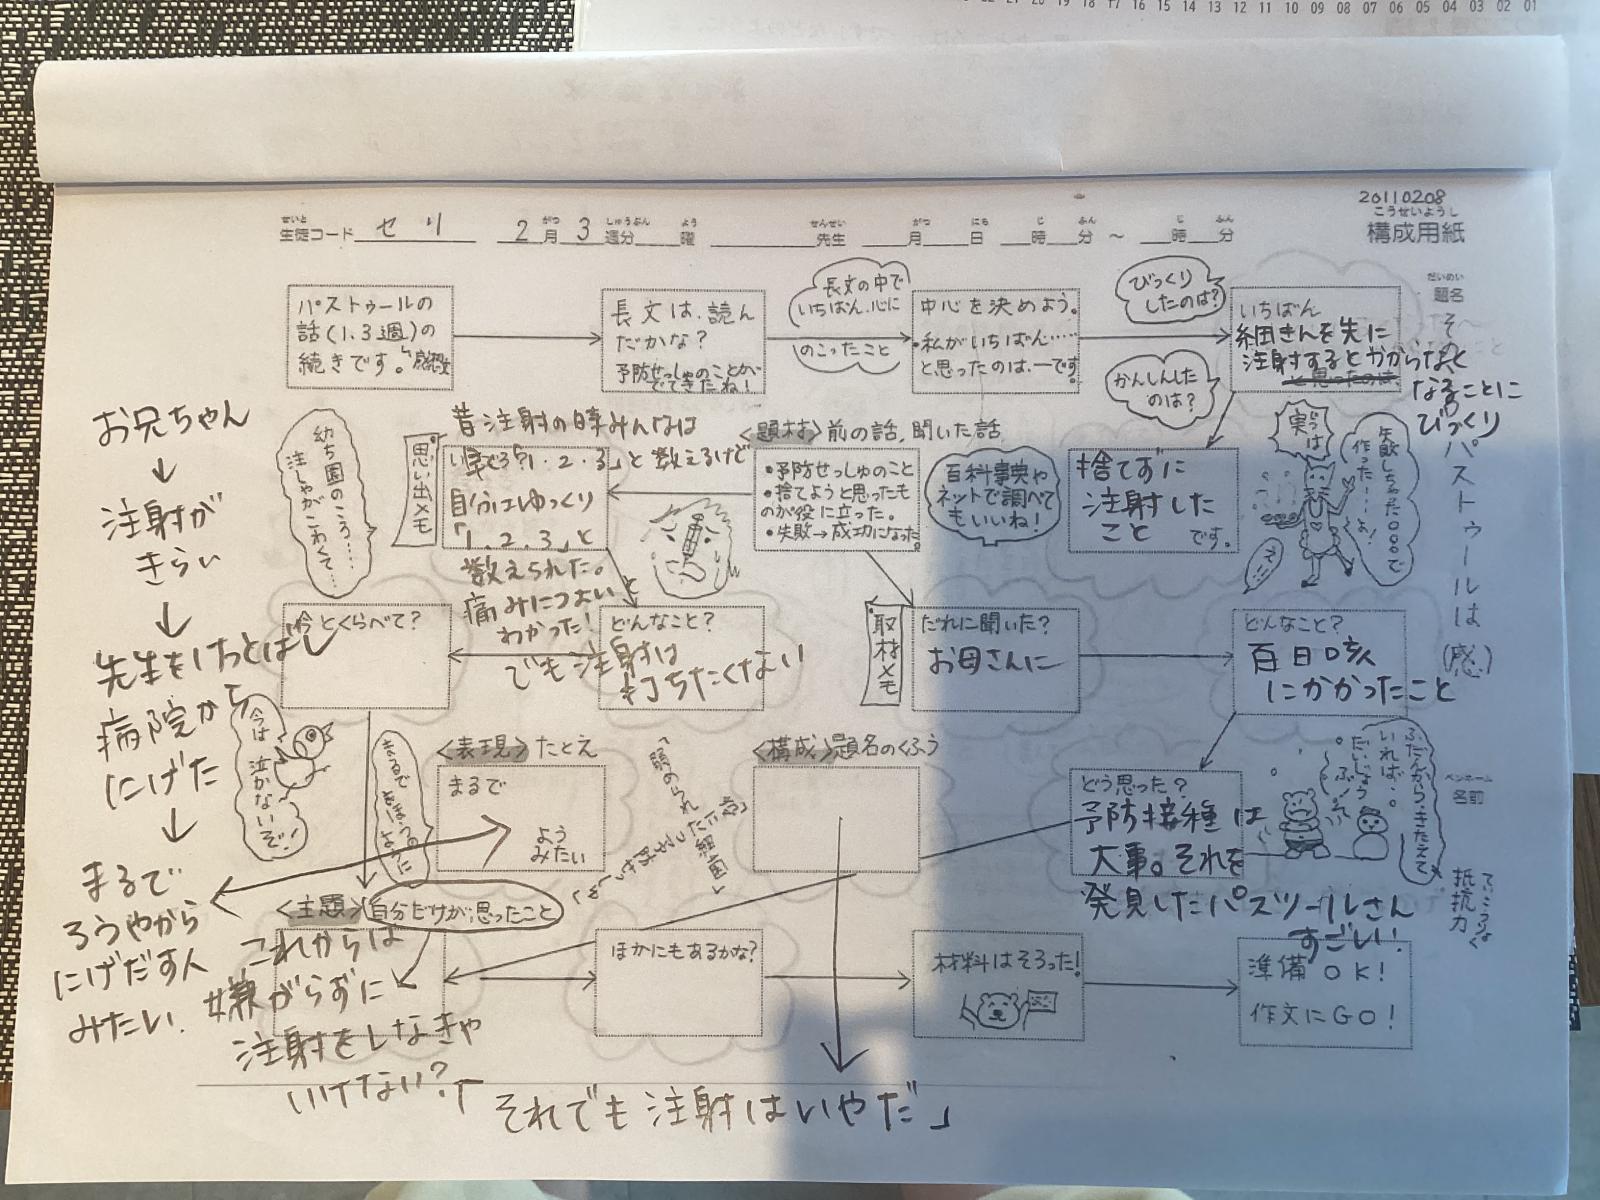 20110208
こうせいようし
構成用紙
せいと
生徒コード セリ 2月3週分 曜 先生 月 日 時 分 〜 時 分
だいめい
題名
その
パストゥールは
(感)
ペンネーム
名前
抵抗力
パストゥールの
話(1.3週)の
続きです。
長文は、読ん
だかな?
予防せっしゅのことが
でてきたね!
長文の中で
いちばん、心に
のこったこと
中心を決めよう。
・私がいちばん……
と思ったのは、ーです。
びっくり
したのは?
かんしんした
のは?
いちばん
細きんを先に
注射するとかからなく
と思ったのは、
なることに
びっくり
捨てずに
注射した
こと
です。
実は
失敗しちゃった○○○で
作った…よ!
え
〈題材〉前の話、聞いた話
・予防せっしゅのこと
・捨てようと思ったも
のが役に立った。
・失敗→成功になった。
百科事典や
ネットで調べて
もいいね!
思い出メモ
昔注射の時みんなは
「1.2.3」と数えるけど
自分はゆっくり
「1.2.3」と
数えられた。
痛みにつよいと
わかった!
幼ち園のころ……
注しゃがこわくて…
お兄ちゃん
↓
注射が
きらい
↓
先生をけっとばし
病院から
にげた
↓
まるで
ろうやから
にげだす人
みたい.
今とくらべて?
どんなこと?
でも注射は
打ちたくない
取材メモ
だれに聞いた?
お母さんに
どんなこと?
百日咳
にかかったこと
今は泣かないぞ!
まるで
〈表現〉たとえ
まるで
よう
みたい
〈構成〉題名のくふう
どう思った?
予防接種は
大事。それを
発見したパスツールさん
すごい!
ふだんからきたえて
いれば…。
だいじょう
ぶ!
〈主題〉自分だけが思ったこと
これからは
嫌がらずに
注射をしなきゃ
いけない?
ほかにもあるかな?
材料はそろった!
準備OK!
作文にGO!
それでも注射はいやだ」